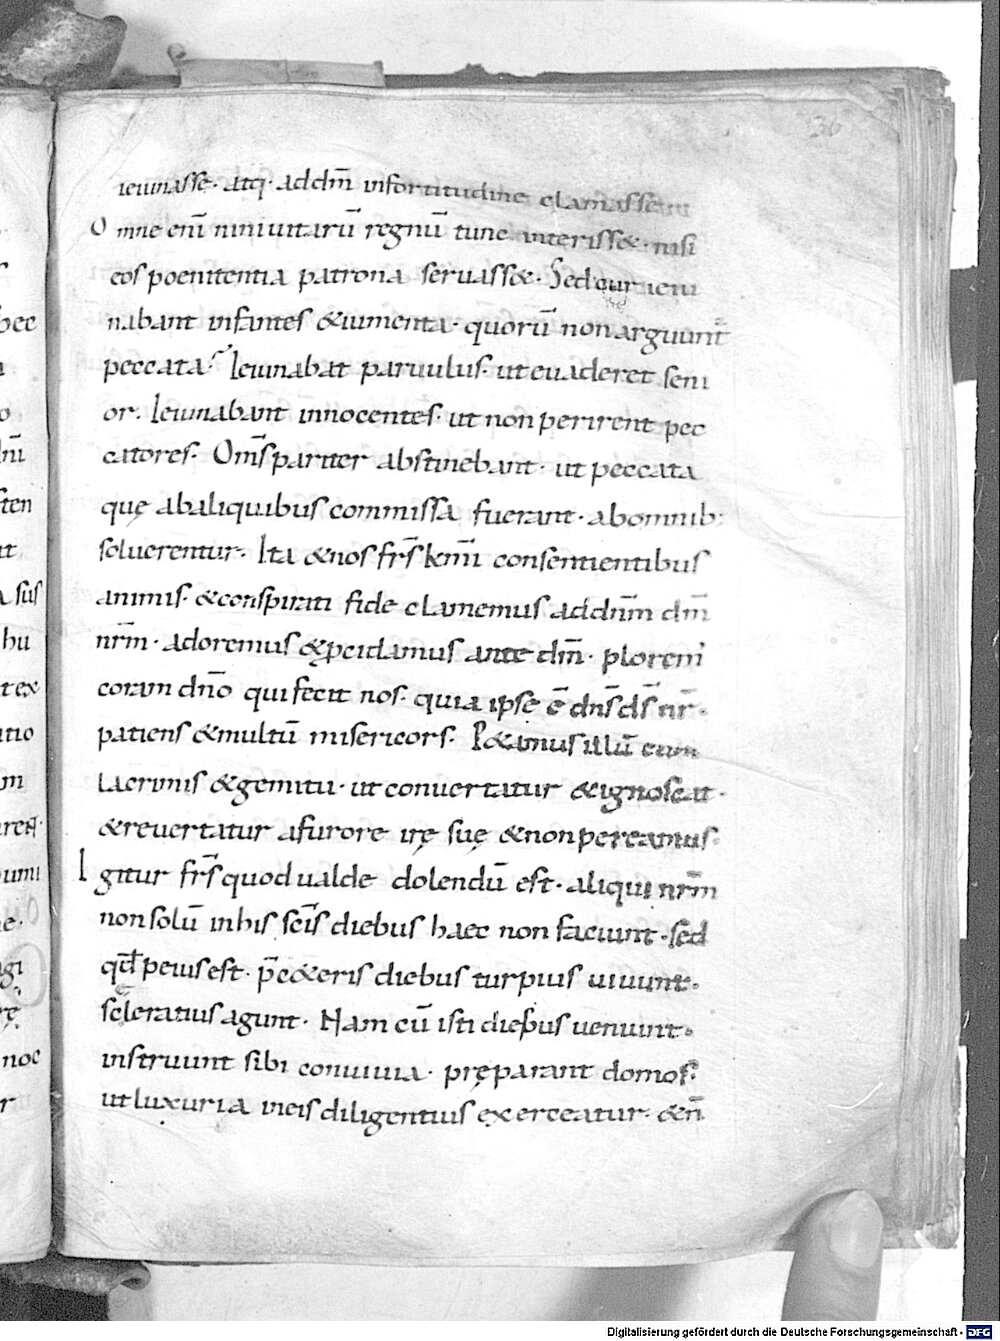 36
ieiunasse· atq· addm̄ infortitudine clamassent
O mne enī niniuitarū regnū tunc interisset· nisi
eos poenitentia patrona seruasset· Sed cur ieiu
nabant infantes &iumenta· quorū non arguunt̄
peccata? Ieiunabat paruulus· ut euaderet seni
or. Ieiunabant innocentes· ut non perirent pec
catores· Om̄s pariter abstinebant· ut peccata
quę abaliquibus commissa fuerant· abomnib:
soluerentur. Ita &nos fr̄s km̄i consentientibus
animis· &conspirati fide clamemus addn̄m dm̄
nr̄m· adoremus &pcidamus ante dm̄· plorem'
coram dn̄o qui fecit nos· quia ipse ē dn̄s ds̄ nr̄·
patiens &multū misericors· P&amus illū cum
lacrimis &gemitu· ut conuertatur &ignoscat·
&reuertatur afurore irę suę &non pereamus·
I gitur fr̄s quod ualde dolendū est· aliqui nr̄m
non solū inhis sc̄is diebus haec non faciunt· sed
qđ peius est· p̄c&eris diebus turpius uiuunt·
sceleratius agunt· Nam cū isti diebus uenuint·
instruunt sibi conuiuia· pręparant domos·
ut luxuria ineis diligentius exerceatur· &n̄
Digitalisierung gefördert durch die Deutsche Forschungsgemeinschaft - DFG